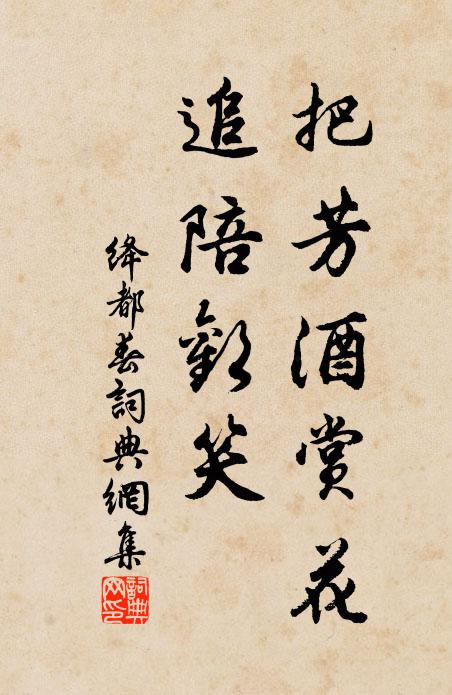 把芳酒賞花
追陪歡笑
絳都春詞典網集
詞典網印